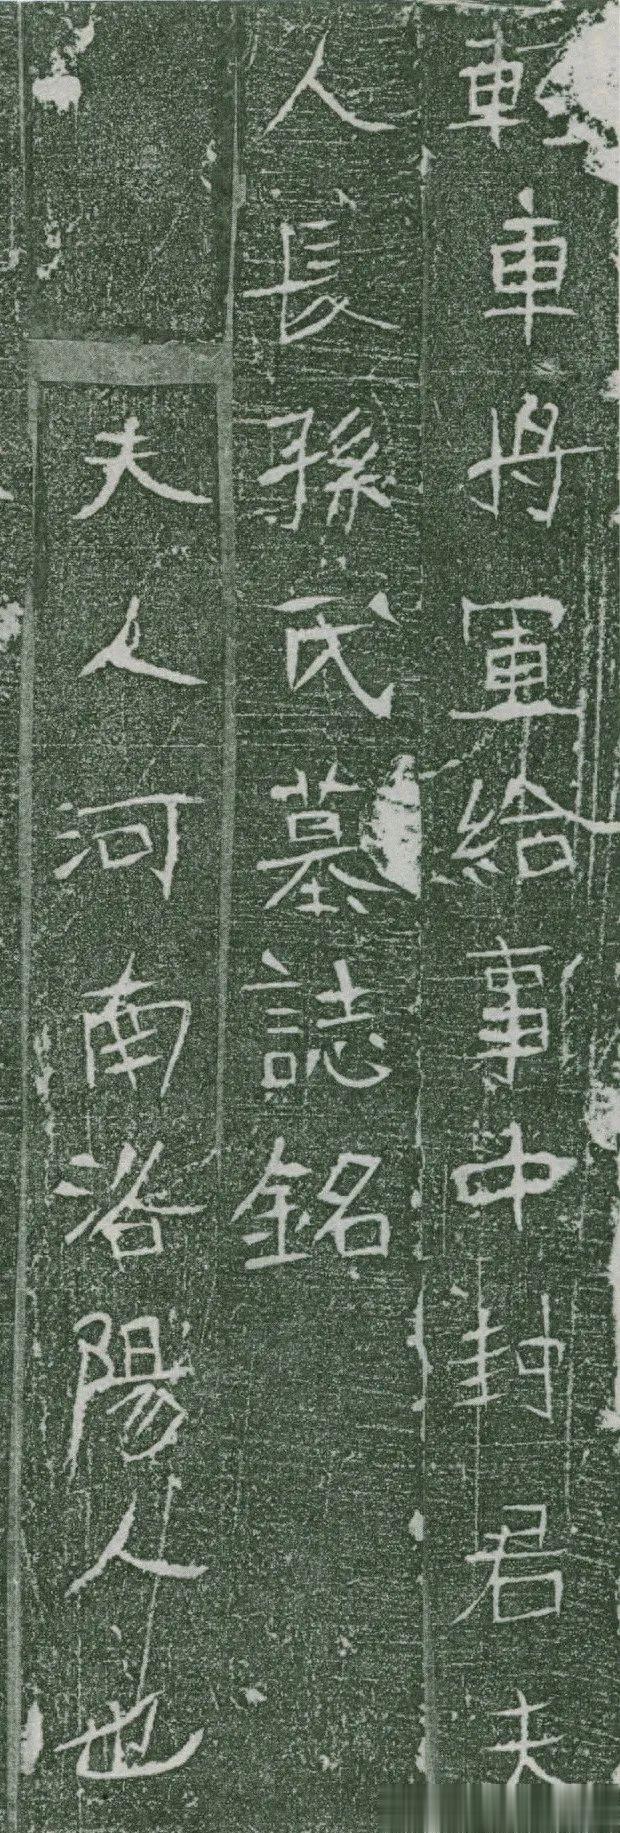 輕車将軍給事中封君夫
人長孫氏墓誌銘
夫人河南洛陽人也